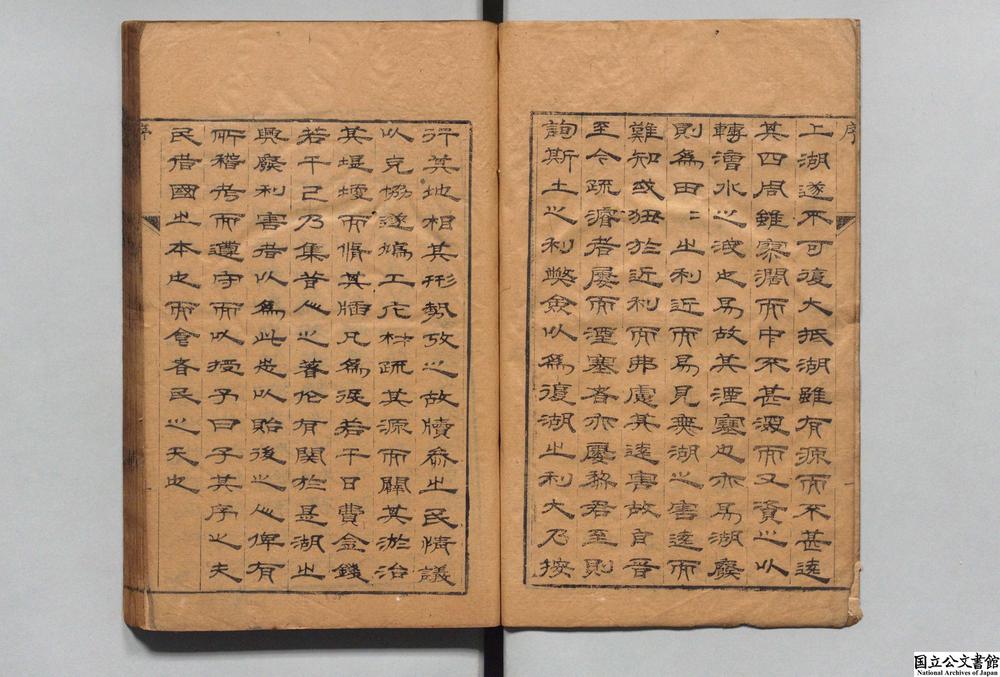 序
上湖遂不可復大抵湖雖有源而不甚遠
其四周雖寥濶而中不甚深而又資之以
轉漕水之洩也易故其湮塞也亦易湖廢
則為田〻之利近而易見無湖之害遠而
難知或狃於近利而弗慮其遠害故自晉
至今疏濬者屢而湮塞者亦屢黎君至則
詢斯土之利弊僉以為復湖之利大乃按
行其地相其形勢攷之故牘參之民情議
以克協遂鳩工庀材疏其源而闢其淤治
其堤堰而脩其牐凡為涵若干日費金錢
若干已乃集昔人之著論有関於是湖之
興廢利害者以為此志以貽後之人俾有
所稽考而遵守而以授予曰子其序之夫
民借國之本也而會者民之天也
序
国立公文書館
National Archives of Japan